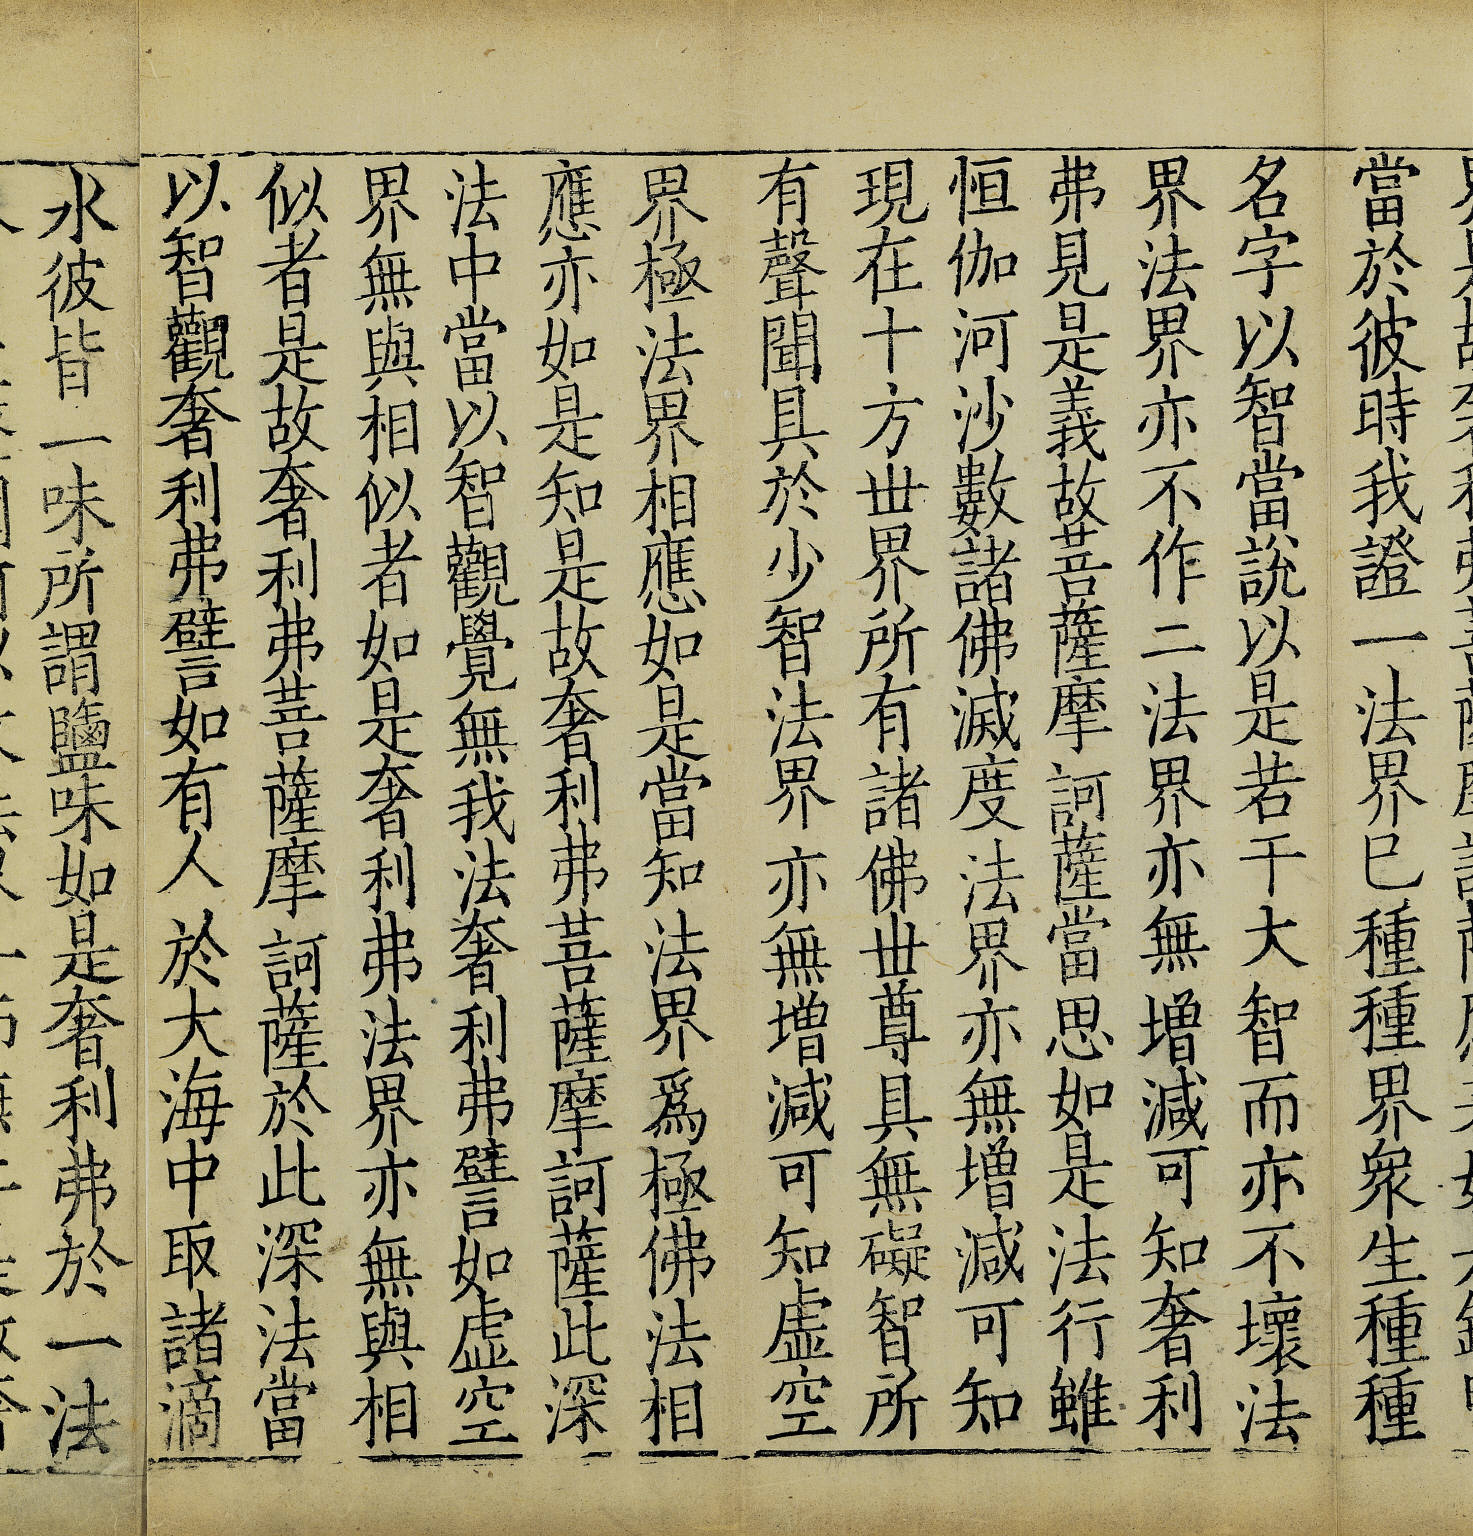 當於彼時我證一法界已種種界衆生種種
名字以智當說以是若干大智而亦不壞法
界法界亦不作二法界亦無增減可知奢利
弗見是義故菩薩摩訶薩當思如是法行雖
恒伽河沙數諸佛滅度法界亦無增減可知
現在十方世界所有諸佛世尊具無礙智所
有聲聞具於少智法界亦無增減可知虛空
界極法界相應如是當知法界爲極佛法相
應亦如是知是故奢利弗菩薩摩訶薩此深
法中當以智觀覺無我法奢利弗譬如虛空
界無與相似者如是奢利弗法界亦無與相
似者是故奢利弗菩薩摩訶薩於此深法當
以智觀奢利弗譬如有人於大海中取諸滴
水彼皆一味所謂鹽味如是奢利弗於一法